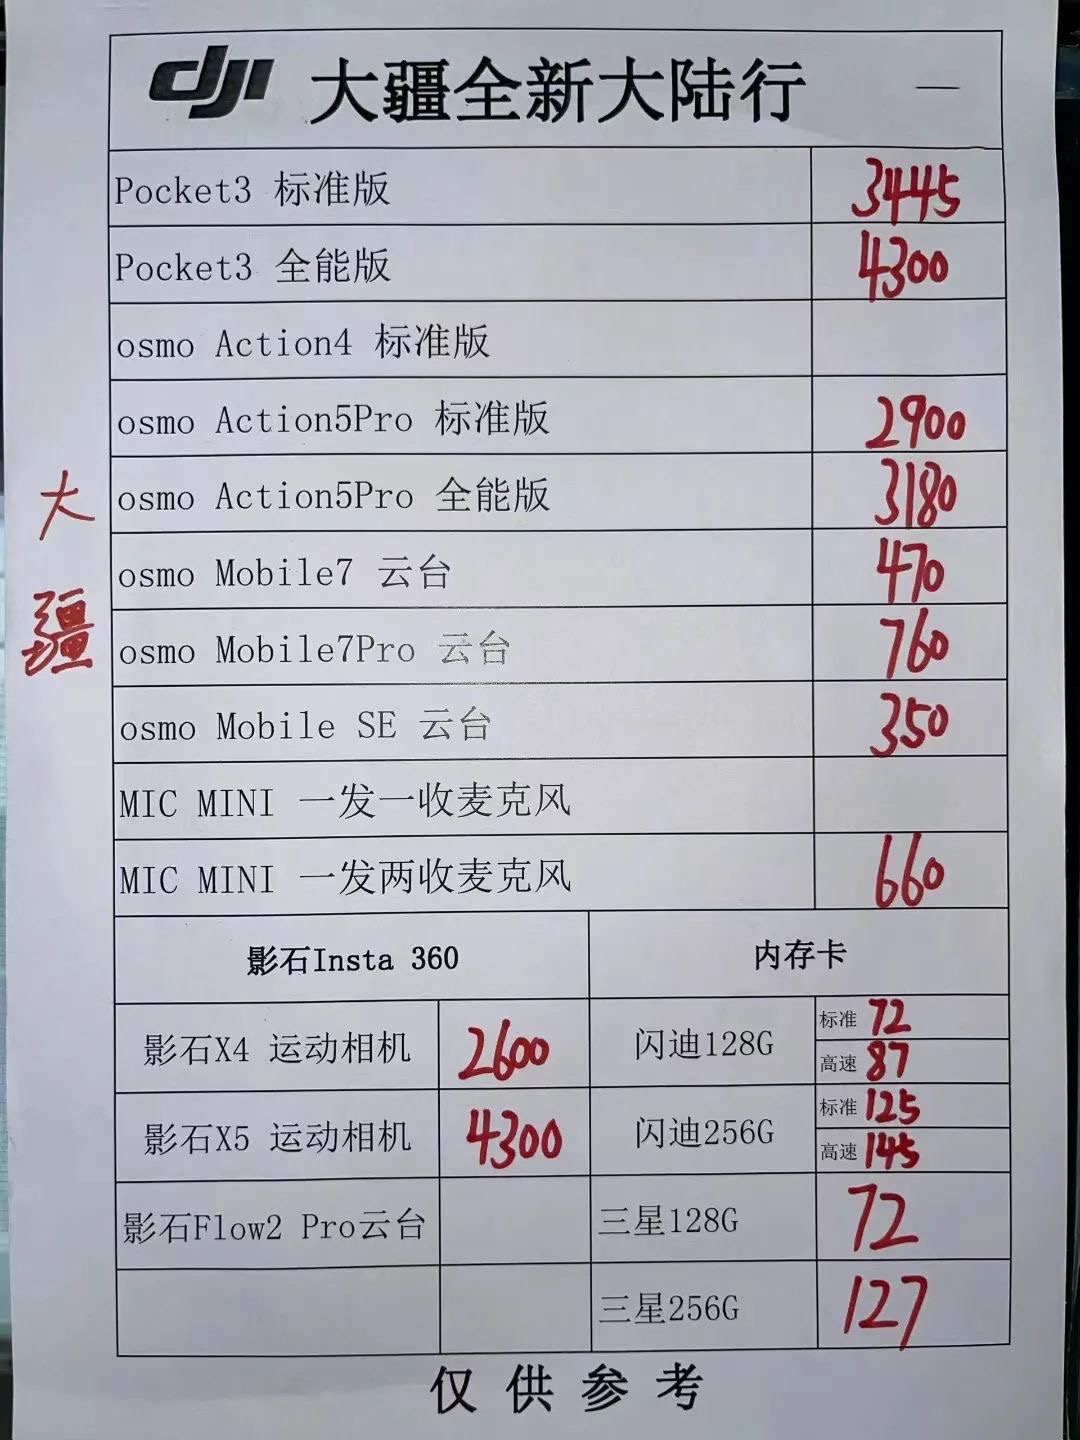 dji 大疆全新大陆行 —
Pocket3 标准版 3445
Pocket3 全能版 4300
osmo Action4 标准版
osmo Action5Pro 标准版 2900
osmo Action5Pro 全能版 3180
osmo Mobile7 云台 470
osmo Mobile7Pro 云台 760
osmo Mobile SE 云台 350
MIC MINI 一发一收麦克风
MIC MINI 一发两收麦克风 660
大疆
影石Insta 360 内存卡
影石X4 运动相机 2600 闪迪128G 标准 72
高速 87
影石X5 运动相机 4300 闪迪256G 标准 125
高速 145
影石Flow2 Pro云台 三星128G 72
三星256G 127
仅供参考